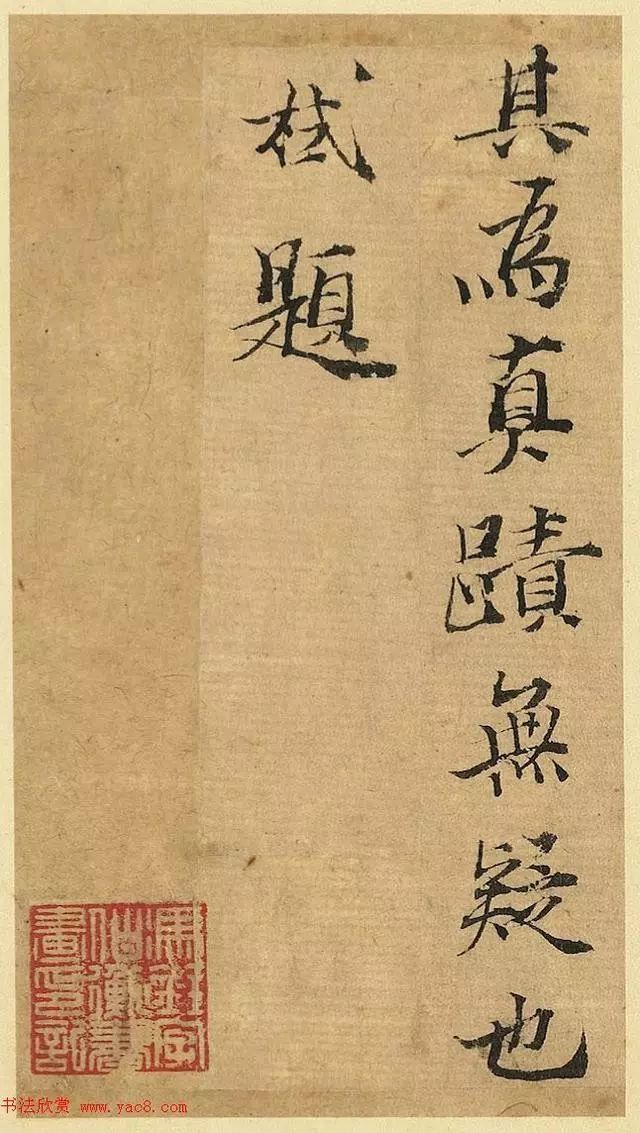 其為真蹟無疑也
栻題
书法欣赏 www.yac8.com